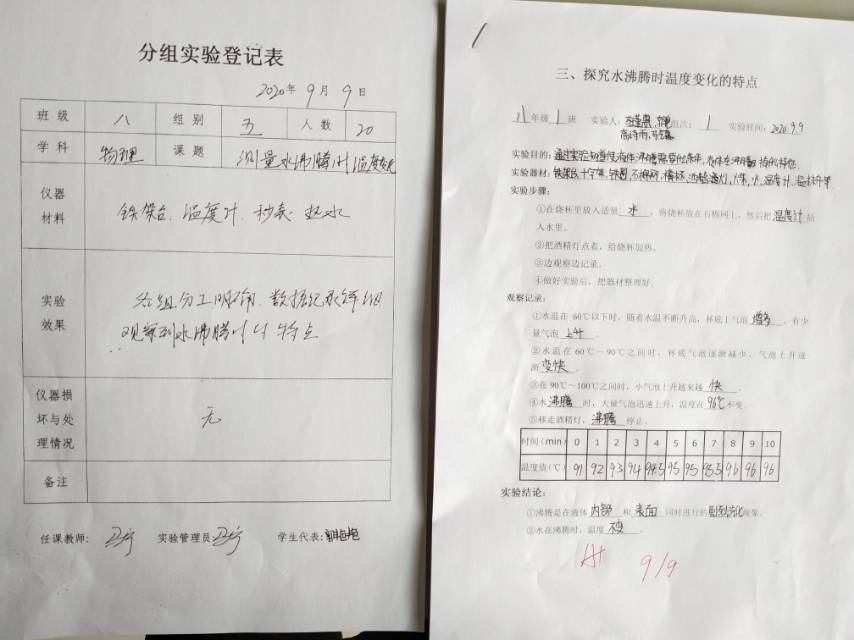 分组实验登记表
2020年 9月 9日
班级 八 组别 五 人数 20
学科 物理 课题 测量水沸腾时温度变化
仪器材料 铁架台、温度计、秒表、热水
实验效果 各组分工明确、数据记录详细
观察到水沸腾时的特点
仪器损坏与处理情况 无
备注
任课教师: 实验管理员: 学生代表:
三、探究水沸腾时温度变化的特点
八年级1班 实验人: 组次: 1 实验时间: 2020.9.9
实验目的:
实验器材: 铁架台、十字夹、铁圈、石棉网、烧杯、酒精灯、火柴、水、温度计、
实验步骤:
①在烧杯里放入适量 水 ,将烧杯放在石棉网上,然后把温度计插
入水里。
②把酒精灯点着,给烧杯加热。
③边观察边记录。
④做好实验后,把器材整理好。
观察记录:
①水温在 60℃以下时,随着水温不断升高,杯底上气泡 增多 ,有少
量气泡 上升 。
②水温在 60℃~90℃之间时,杯底气泡逐渐减少,气泡上升逐
渐 变快 。
③在90℃~100℃之间时,小气泡上升越来越 快 。
④水 沸腾 时,大量气泡迅速上升,温度在 96℃ 不变。
⑤移走酒精灯, 沸腾 停止。
时间(min) 0 1 2 3 4 5 6 7 8 9 10
温度值(℃) 91 92 93 94 94.5 95 95 95.5 96 96 96
实验结论:
①沸腾是在液体 内部 和 表面 同时进行的剧烈汽化现象。
②水在沸腾时,温度 不变 。
A+ 9/9